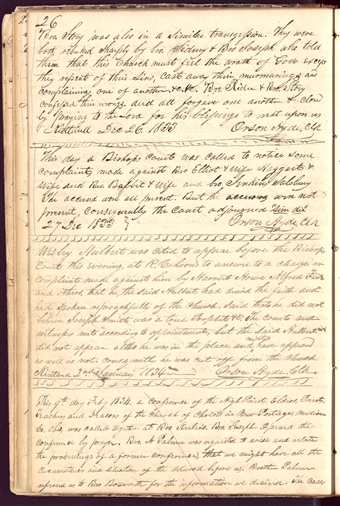 26
Bro Story was also in a Similar transgression. They were
both rebuked sharply by bro Sidney & Bro Joseph who told
them that this Church must feel the wrath of God except
they repent of their Sins, cast away their murmurings and
complainings one of another &c &c. Bro Rider & Bro Story
confessed their wrongs and all forgave one another & closed
by praying to the Lord for his blessings to rest upon us
Kirtland Dec 26. 1833 Orson Hyde, Clk
This day a Bishops Court was called to notice some
complaints made against Bro Elliot & wife Haggart &
wife and Bro Babbit & wife and bro Jenkins Salsbury
The accused were all present. But the accusers were not
present, consequently the Court adjourned sine die
27 Dec 1833 Orson Hyde, Clk
Wesley Hulbert was cited to appear before the Bishops
Court this evening at 6 o clock to answer to a charge or
complaint made against him by Harriet Howe Alfred
and others that he the said Hulbert had denied the faith and
had spoken disrespectfully of the Church. Said that he did not
believe Joseph Smith was a true Prophet &c The Court and
witnesses met according to appointment, but the Said Hulbert
did not appear altho he was in the place and might have appeared
as well as not; consequently he was cut off from the Church
Kirtland 2nd January 1834 Orson Hyde, Clk.
This 9th day Feby 1834. a Conference of the High Priests Elders Priests
Teachers and Deacons of the Church of Christ in New Portage, Medina
Co. Ohio, was called together at Bro Kirlins. Bro Joseph opened the
conference by prayer. Bro A Palmer was requested to arise and relate
the proceedings of a former conference, that we might have all the
situation of the Church before us. Brother Palmer
refered us to Bro Bosworth for the information we desired. The case